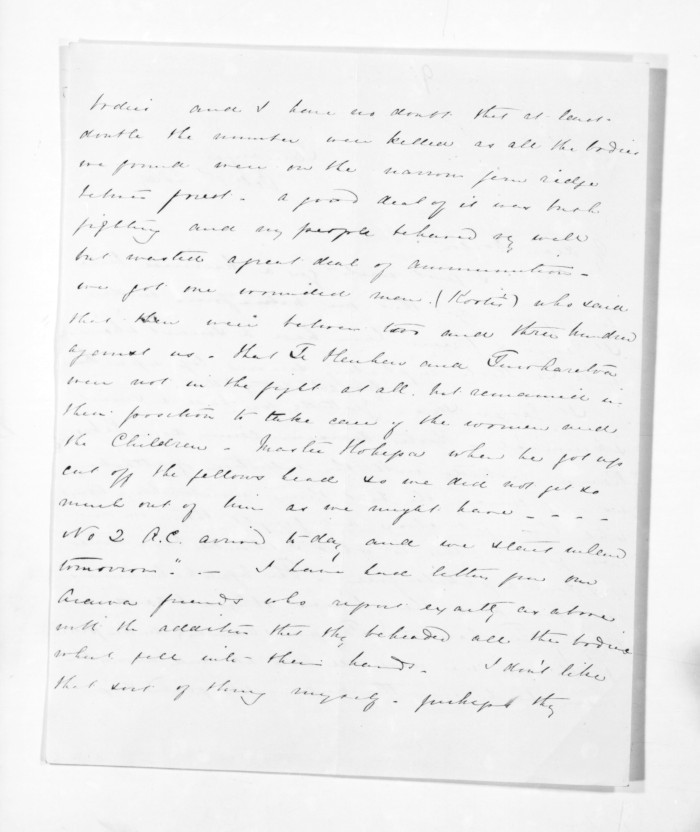 bodies and I have no doubt that at least
double the number were killed as all the bodies
we found were on the narrow fern ridge
between forest - a good deal of it was bush
fighting and my people behaved very well
but wasted a great deal of ammunition -
we got one wounded man. who said
that there were between two and three hundred
against us - that Te Heuheu and
were not in the fight at all. but remained in
their position to take care of the women and
the Children - Master Hohepa when he got up
cut off the fellows head so we did not get so
much out of him as we might have - - - -
No 2 A.C. arrived to-day and we start inland
tomorrow." - I have had letters from our
Arawa friends who report exactly as above
with the addition that they beheaded all the bodies
what fell into their hands - I don't like
that sort of thing myself - perhaps they